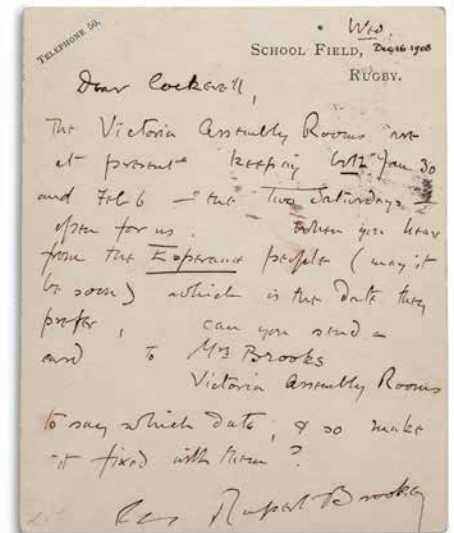 TELEPHONE 50.
Wed.
SCHOOL FIELD, Dec 16 1908
RUGBY.
Dear Cockerell,
The Victoria Assembly Rooms are
at present keeping both Jan 30
and Feb 6 — the two Saturdays —
open for us. When you hear
from the Esperance people (may it
be soon) which is the date they
prefer, can you send a
card to Mrs Brooks
Victoria Assembly Rooms
to say which date, & so make
it fixed with them?
Rupert Brooke